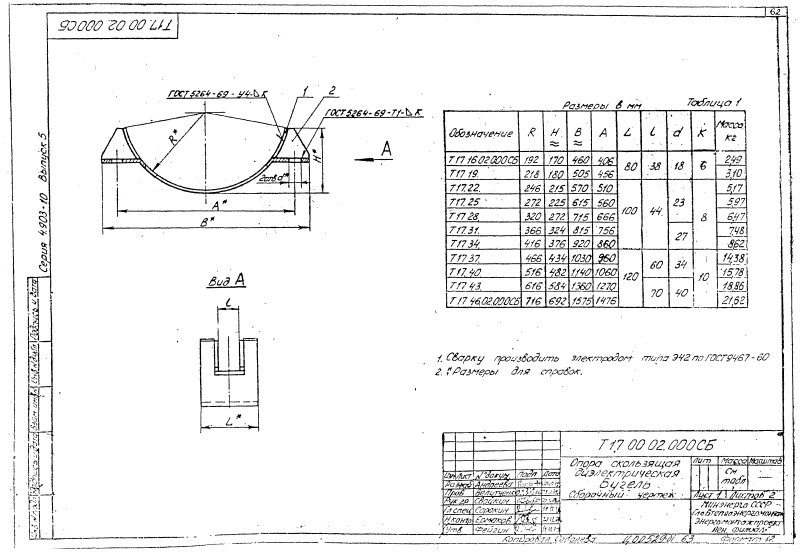 62
Т17 00 02 000СБ
Серия 4.903-10 Выпуск 5
ГОСТ 5264-69-У4-К
1
2
ГОСТ 5264-69-Т1-К
R*
H*
А
2отв.d*
A*
B*
Вид А
l
L*
Размеры в мм
Таблица 1
Обозначение R H ≈ B ≈ A L l d K Масса кг
Т17.16.02.000СБ 192 170 460 406 80 38 18 6 2,49
Т17.19. 218 180 505 456 3,10
Т17.22. 246 215 570 510 100 44 23 8 5,17
Т17.25 272 225 615 560 5,97
Т17.28. 320 272 715 666 6,47
Т17.31. 366 324 815 756 27 7,48
Т17.34. 416 376 920 860 8,62
Т17.37. 466 434 1030 960 120 60 34 10 14,38
Т17.40. 516 482 1140 1060 15,78
Т17.43. 616 584 1360 1270 70 40 18,86
Т17 46.02.000СБ 716 692 1575 1476 21,52
1. Сварку производить электродом типа Э42 по ГОСТ 9467-60
2. * Размеры для справок.
Т17 00 02.000СБ
Опора скользящая
диэлектрическая
Бугель
Сборочный чертеж
Лит Масса Масштаб
См табл —
Лист 1 Листов 2
Минэнерго СССР
Главтеплоэнергомонтаж
Энергомонтажпроект
Лен. филиал
Изм Лист № докум. Подп Дата
Разраб Андреева
Пров
Рук.гр
Гл.спец Сорокин
Н.контр Ермаков
Утв Фейгин
Копировал
Формат 12